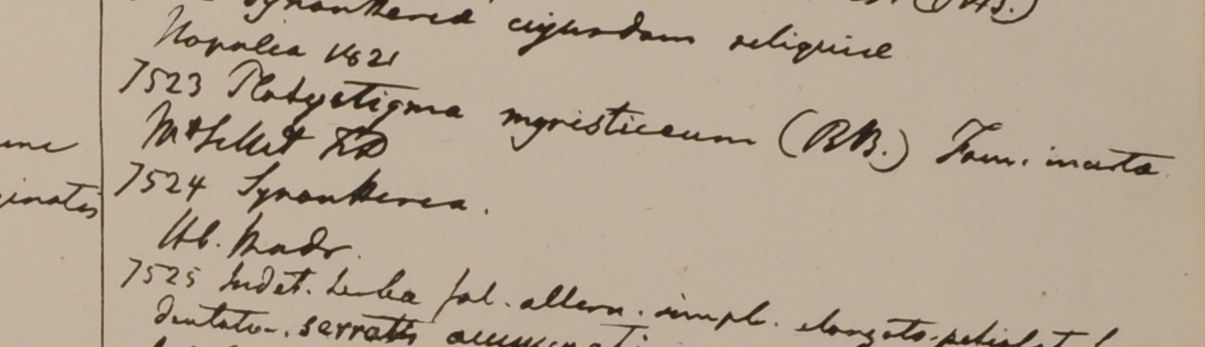 Synantherea cujusdam reliquiae
Napalia 1821
7523 Platystigma myristiceum (RB.) Fam. incerta
Mt Sillet FD
7524 Synantherea.
Hb. Madr.
7525 Indet. herba fol. altern. simpl. elongato-petiolat
dentato-serratis acuminati